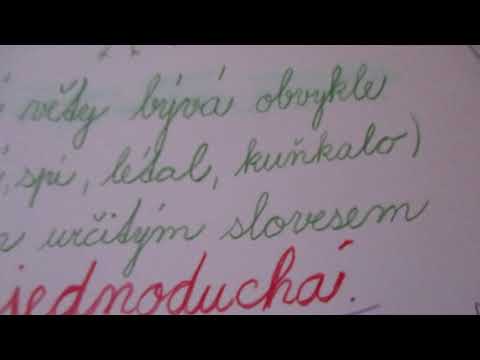 věty bývá obvykle
spí, létal, kuňkalo)
určitým slovesem
jednoduchá.